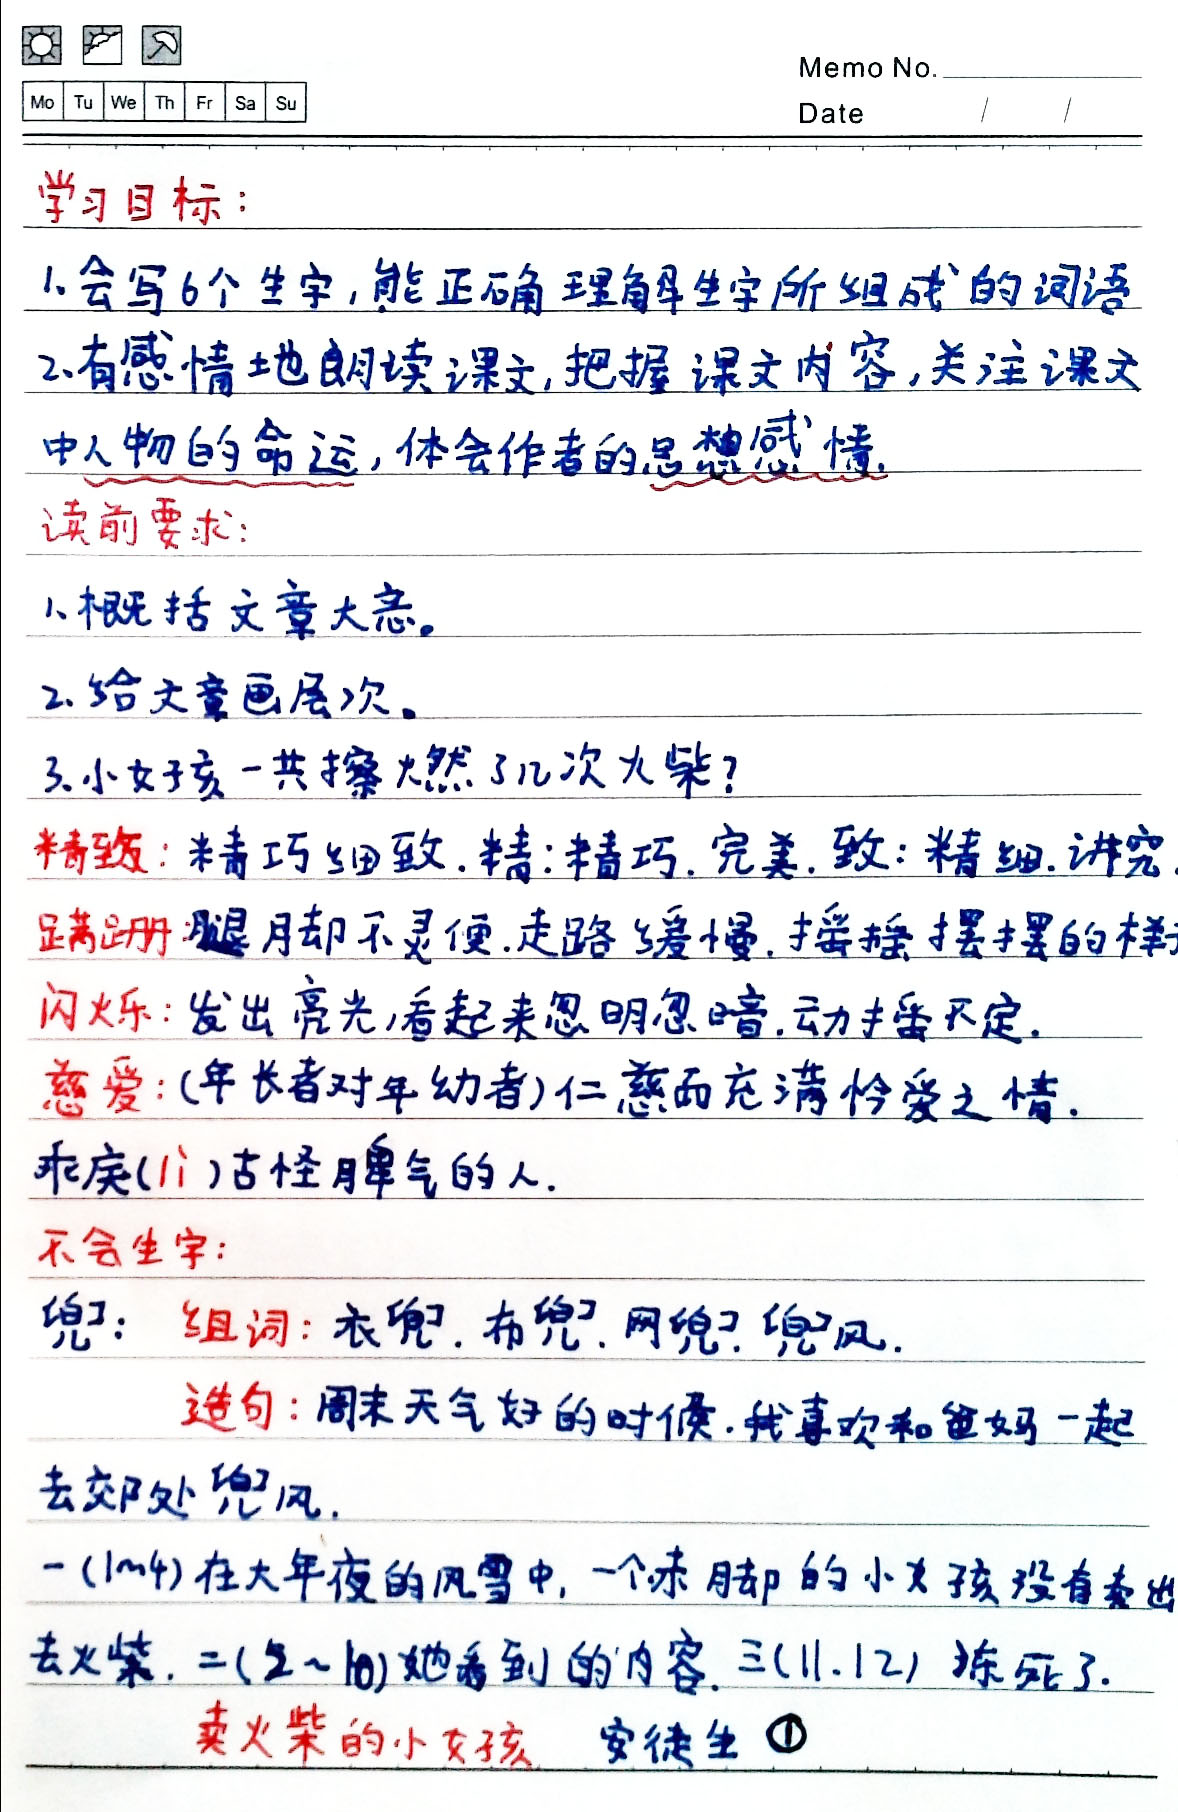 Memo No.
Mo Tu We Th Fr Sa Su
Date / /
学习目标:
1.会写6个生字,能正确理解生字所组成的词语
2.有感情地朗读课文,把握课文内容,关注课文
中人物的命运,体会作者的思想感情.
读前要求:
1.概括文章大意。
2.给文章画层次。
3.小女孩一共擦燃了几次火柴?
精致:精巧细致.精:精巧.完美.致:精细.讲究.
蹒跚:腿脚不灵便.走路缓慢.摇摇摆摆的样子
闪烁:发出亮光,看起来忽明忽暗.动摇不定.
慈爱:(年长者对年幼者)仁慈而充满怜爱之情.
乖戾(lì)古怪脾气的人.
不会生字:
兜: 组词:衣兜.布兜.网兜.兜风.
造句:周末天气好的时候.我喜欢和爸妈一起
去郊处兜风.
一(1~4)在大年夜的风雪中,一个赤脚的小女孩没有卖出
去火柴.二(5~10)她看到的内容.三(11.12)冻死了.
卖火柴的小女孩 安徒生 ①